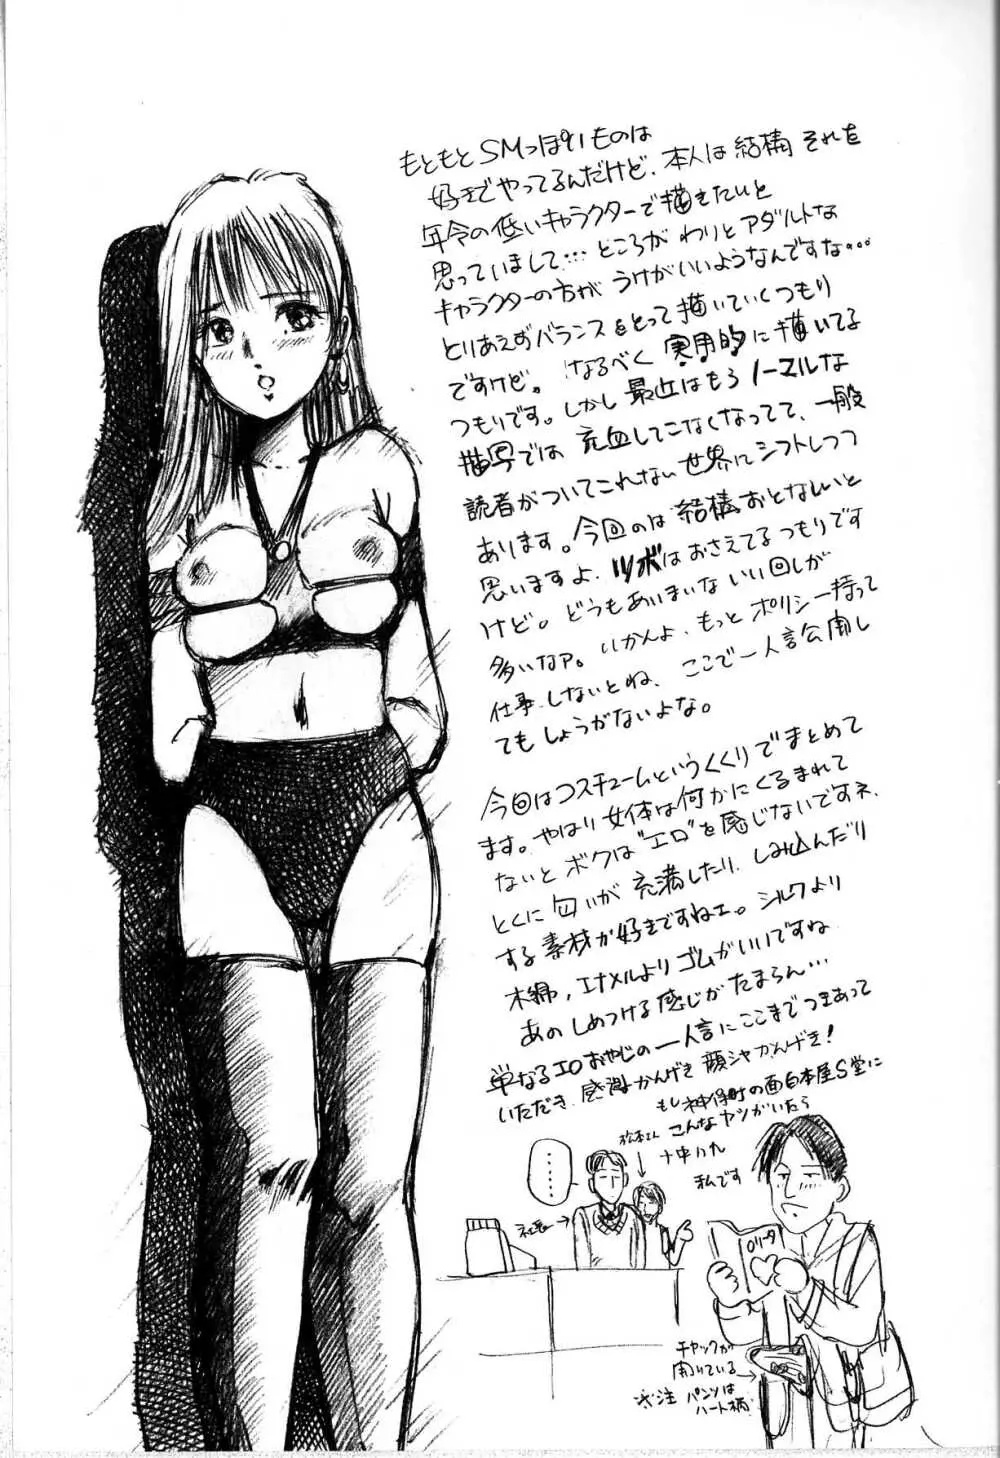 もともとSMっぽいものは
好きでやってるんだけど、本人は結構それを
年令の低いキャラクターで描きたいと
思っていまして…ところがわりとアダルトな
キャラクターの方がうけがいいようなんですな…
とりあえずバランスをとって描いていくつもり
ですけど。なるべく実用的に描いてる
つもりです。しかし最近はもうノーマルな
描写では充血してこなくなってて、一般
読者がついてこれない世界にシフトしつつ
あります。今回のは結構おとなしいと
思いますよ、ツボはおさえてるつもりです
けど。どうもあいまいないい回しが
多いなァ。いかんよ、もっとポリシー持って
仕事しないとね、ここで一人言公開し
てもしょうがないよな。
今回はコスチュームというくくりでまとめて
ます。やはり女体は何かにくるまれて
ないとボクは"エロ"を感じないですネ、
とくに匂いが充満したり、しみ込んだり
する素材が好きですねェ。シルクより
木綿、エナメルよりゴムがいいですね
あのしめつける感じがたまらん…
単なるエロおやじの一人言にここまでつきあって
いただき、感謝かんげき顔シャかんげき!
もし神保町の面白本屋S堂に
こんなヤツがいたら
十中八九
私です
松本さん
……
社長
ロリータ
チャックが
開いている
※注 パンツは
ハート柄